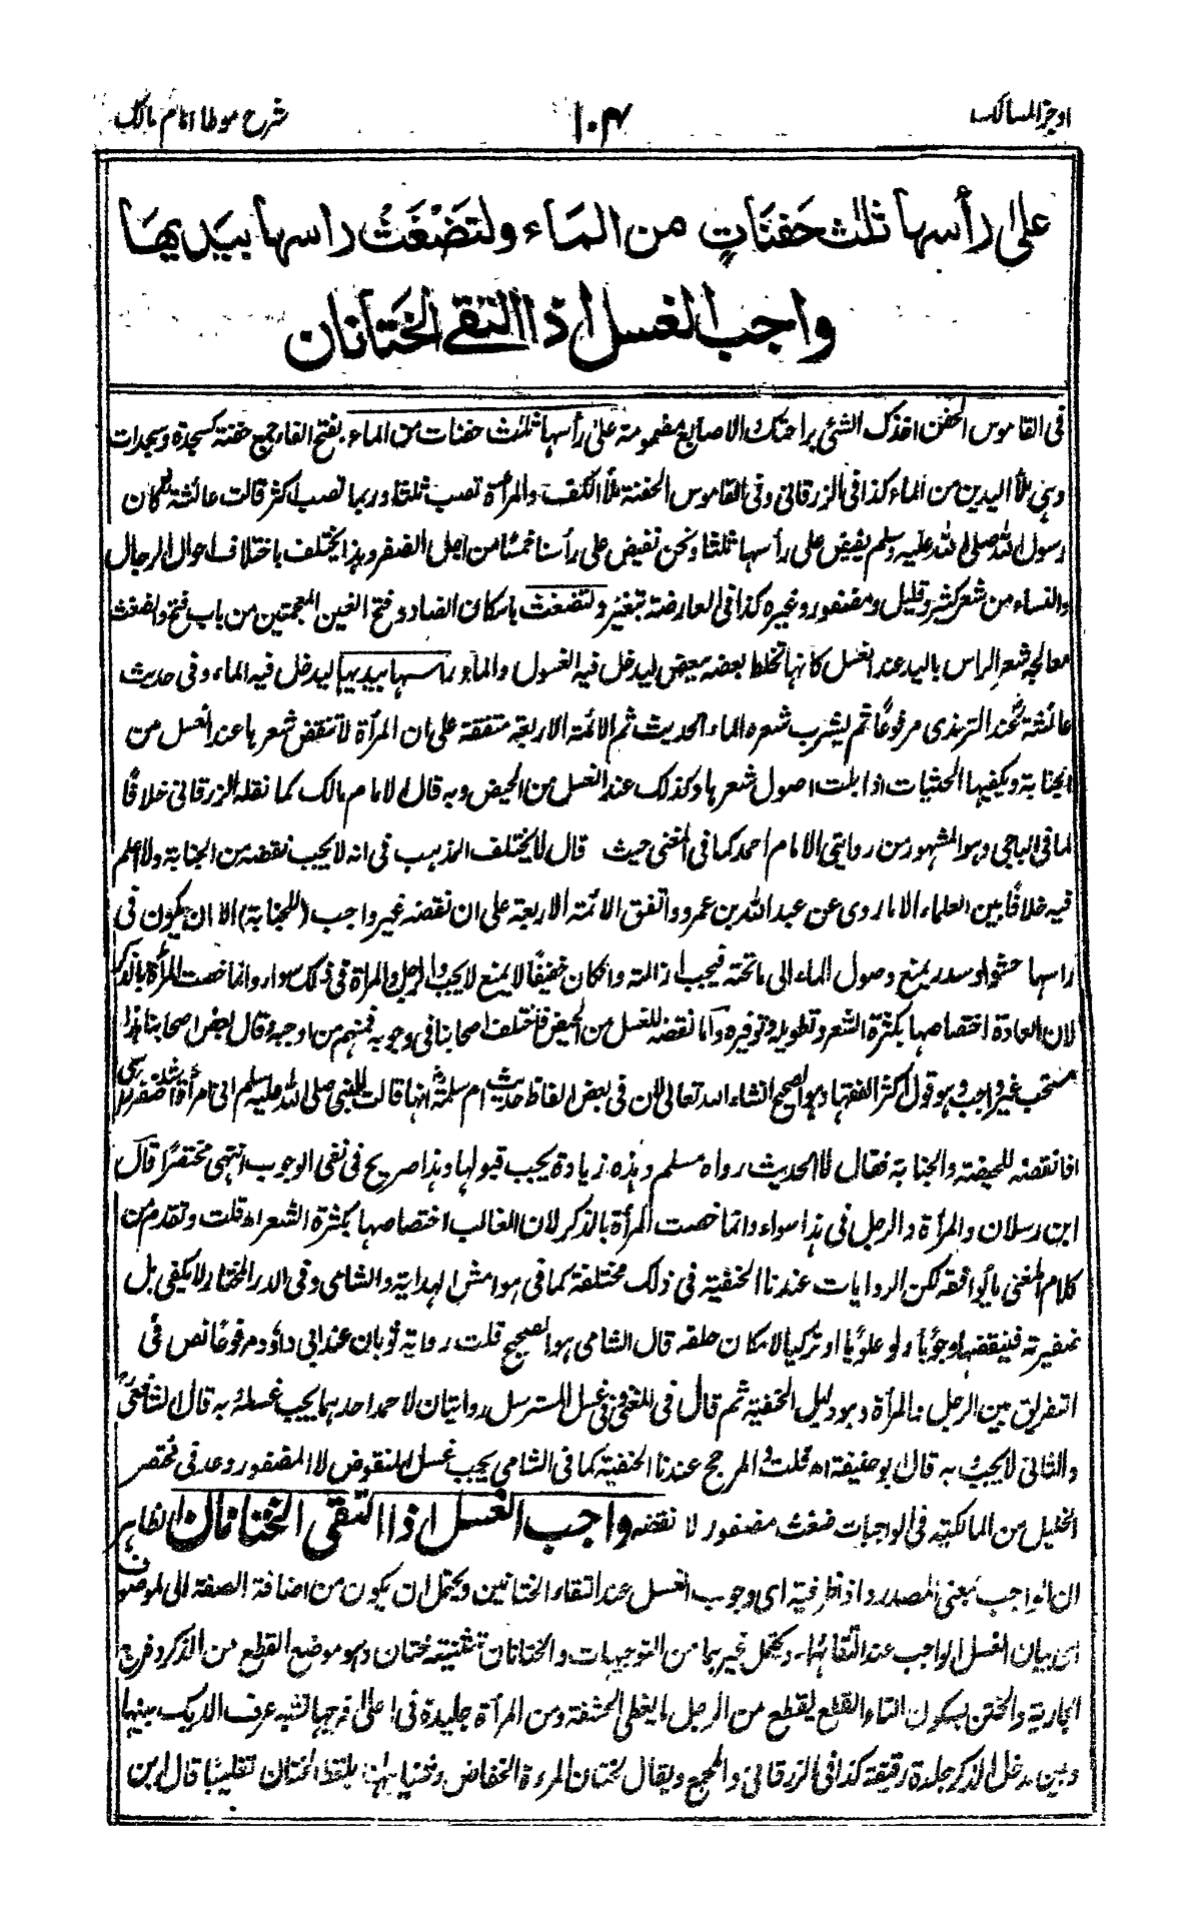 اوجز المسالك
١٠٤
شرح موطا امام مالك
على رأسها ثلث حَفنَاتٍ من المَاء ولتَضْغَثْ راسها بيَديهَا
واجب الغسل اذا التقى الختانان
فى القاموس الحفن اخذك الشئ براحتك والاصابع مضمومة على رأسها ثلث حفنات من الماء بفتح الفاء جمع حفنة كسجدة وسجدات
وهى ملأ اليدين من الماء كذا فى الزرقانى وفى القاموس الحفنة ملأ الكف والمرأة تصب ثلثا وربما تصب اكثر قالت عائشة كان
رسول الله صلى الله عليه وسلم يفيض على رأسها ثلثا ونحن نفيض على رأسنا خمسًا من اجل الضفر وهذا يختلف باختلاف احوال الرجال
والنساء من شعر كثير وقليل ومضفور وغيره كذا فى العارضة بتغير ولتضغث باسكان الضاد وفتح الغين المعجمتين من باب فتح والضغث
معالجة شعر الراس باليد عند الغسل كانها تخلط بعضه ببعض ليدخل فيه الغسول والماء وراسها بيديها ليدخل فيه الماء وفى حديث
عائشة عند الترمذى مرفوعًا ثم يشرب شعره الماء الحديث ثم الائمة الاربعة متفقة على ان المرأة لا تنقض شعرها عند الغسل من
الجنابة ويكفيها الحثيات اذا بلت اصول شعرها وكذلك عند الغسل من الحيض وبه قال الامام مالك كما نقله الزرقانى خلافًا
لما فى الباجى وهو المشهور من روايتى الامام احمد كما فى المغنى حيث قال لا يختلف المذهب فى انه لا يجب نقضه من الجنابة ولا اعلم
فيه خلافًا بين العلماء الا ما روى عن عبد الله بن عمرو واتفق الائمة الاربعة على ان نقضه غير واجب (للجنابة) الا ان يكون فى
راسها حشو او سدر يمنع وصول الماء الى ما تحته فيجب ازالته وان كان خفيفًا لا يمنع لا يجب والرجل والمرأة فى ذلك سواء وانما خصت المرأة بالذكر
لان العادة اختصاصها بكثرة الشعر وتطويله وتوفيره واما نقضه للغسل من الحيض فاختلف اصحابنا فى وجوبه فمنهم من اوجبه وقال بعض اصحابنا هذا
مستحب غير واجب وهو قول اكثر الفقهاء وهو الصحيح انشاء الله تعالى لان فى بعض الفاظ حديث ام سلمة انها قالت للنبى صلى الله عليه وسلم انى امرأة اشد ضفر رأسى
افانقضه للحيضة والجنابة فقال لا الحديث رواه مسلم وهذه زيادة يجب قبولها وهذا صريح فى نفى الوجوب انتهى مختصرًا قال
ابن رسلان والمرأة والرجل فى هذا سواء وانما خصت المرأة بالذكر لان الغالب اختصاصها بكثرة الشعر اھ قلت وتقدم من
كلام المغنى ما يوافقه لكن الروايات عندنا الحنفية فى ذلك مختلفة كما فى هوامش الهداية والشامى وفى الدر المختار لا يكفى بل
ضفيرته فينقضها وجوبًا ولو علويًا او تركيا لامكان حلقه قال الشامى هو الصحيح قلت رواية ثوبان عند ابى داؤد مرفوعًا نص فى
التفريق بين الرجل والمرأة وهو دليل الحنفية ثم قال فى المغنى وفى غسل المسترسل روايتان لاحمد احدهما يجب غسله وبه قال الشافعى
والثانى لا يجب وبه قال ابو حنيفة اھ قلت والمرجح عندنا الحنفية كما فى الشامى يجب غسل المنقوض لا المضفور وعد فى مختصر
الخليل من المالكية فى الواجبات ضغث مضفور لا نقضه واجب الغسل اذا التقى الختانان الظاهر
ان الواجب بمعنى المصدر واذا ظرفية اى وجوب الغسل عند التقاء الختانين ويحتمل ان يكون من اضافة الصفة الى الموصوف
اى بيان الغسل الواجب عند التقائهما ويحتمل غيرهما من التوجيهات والختانان تثنية ختان وهو موضع القطع من الذكر وفرج
الجارية والختن بسكون التاء القطع يقطع من الرجل ما يغطى الحشفة ومن المرأة جليدة فى اعلى فرجها تشبه عرف الديك بينها
وبين مدخل الذكر جلدة رقيقة كذا فى الزرقانى والمجمع ويقال لختان المرءة الخفاض وثنيا بلفظ الختان تغليبًا قال ابن